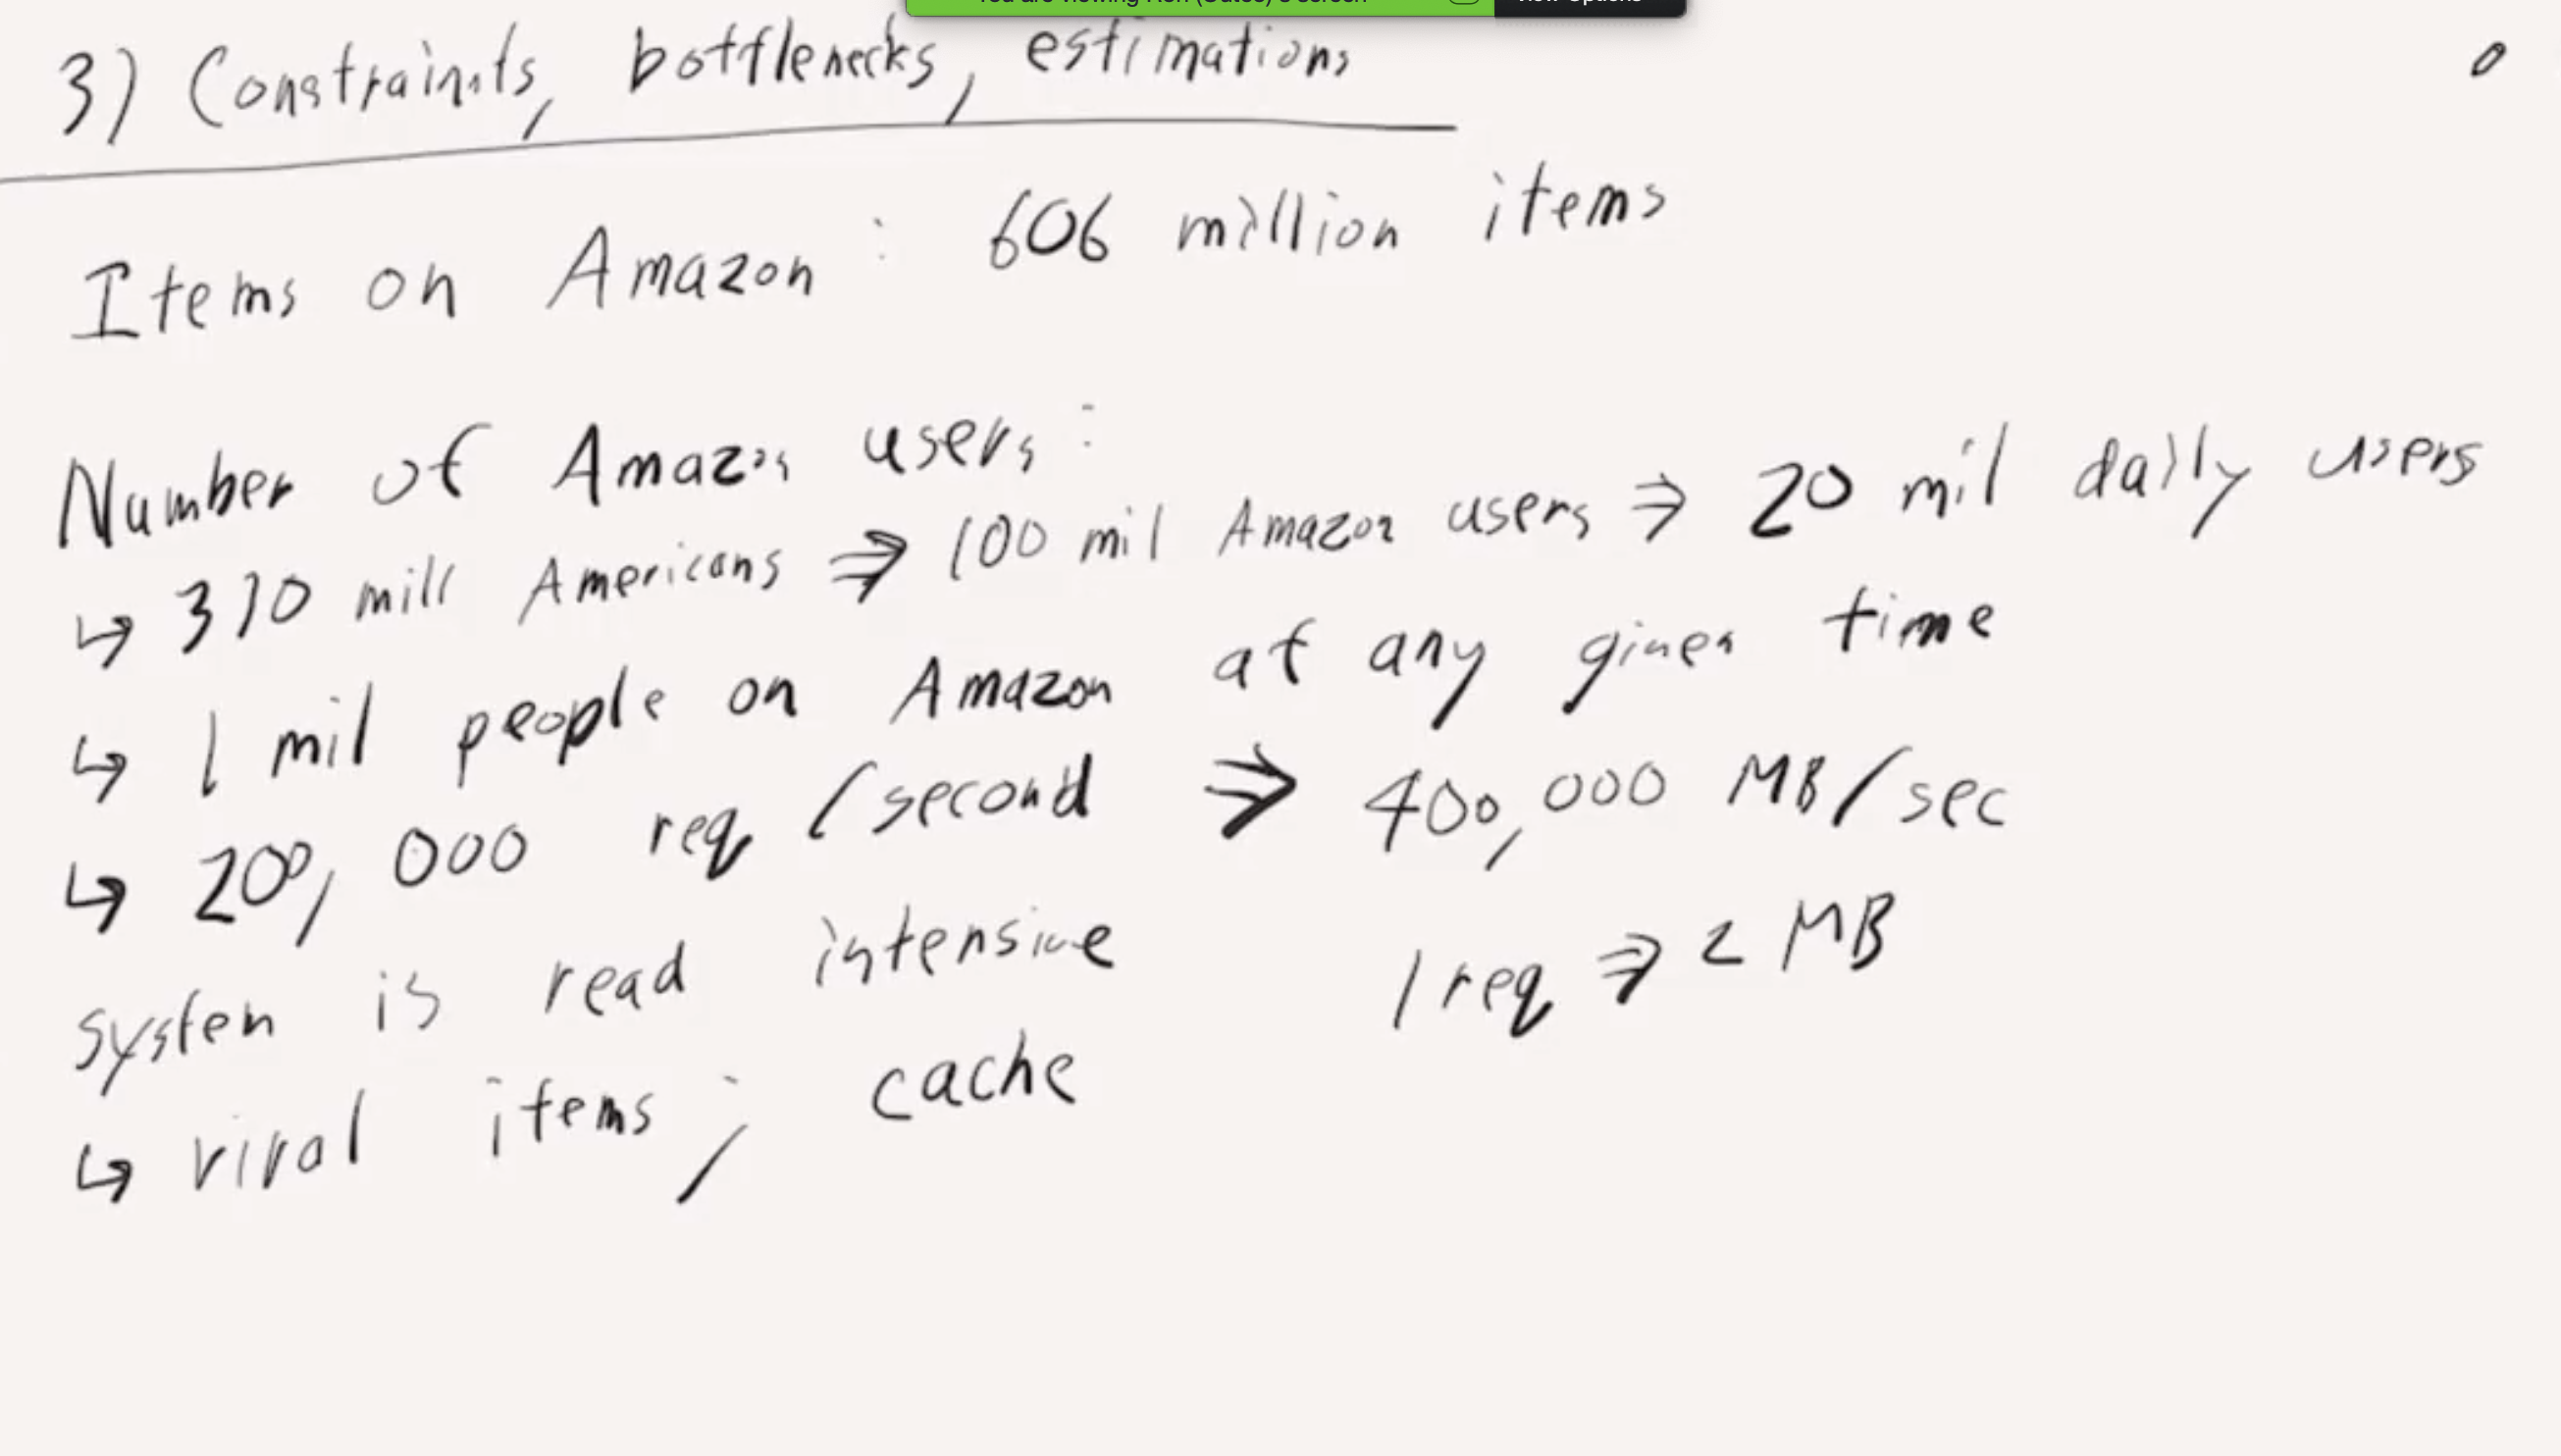 3) Constraints, bottlenecks, estimations
Items on Amazon: 606 million items
Number of Amazon users:
↳ 310 mill Americans ⇒ 100 mil Amazon users ⇒ 20 mil daily users
↳ 1 mil people on Amazon at any given time
↳ 200,000 req/second ⇒ 400,000 MB/sec
1 req ⇒ 2 MB
system is read intensive
↳ viral items; cache